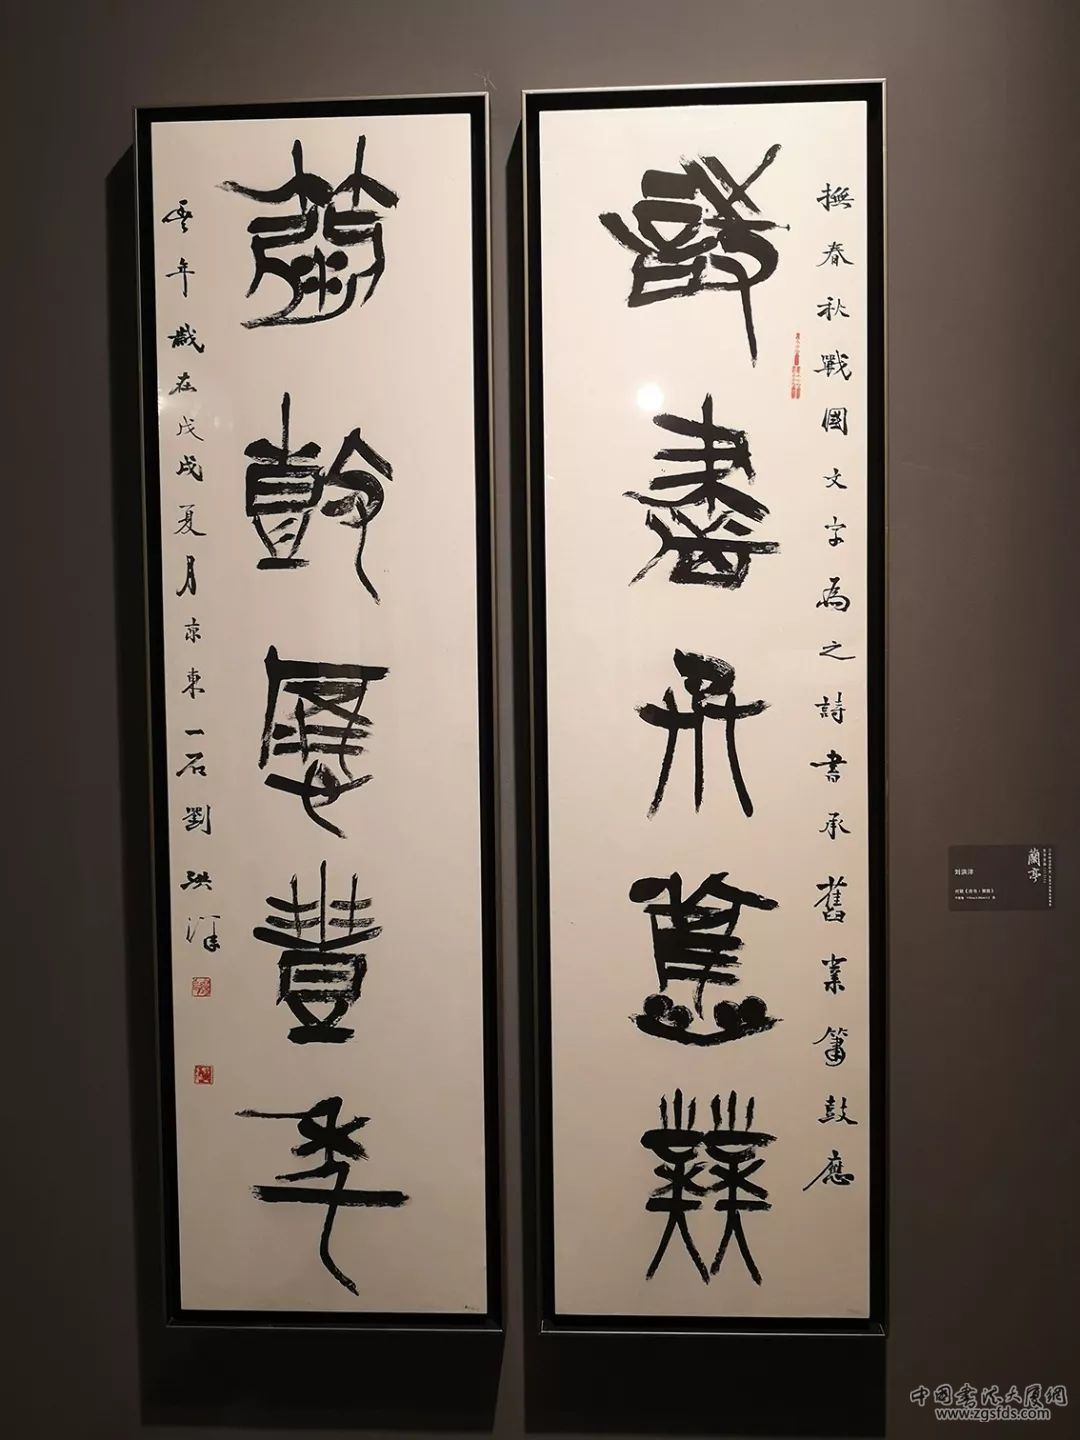 撫春秋戰國文字為之詩書承舊業簫鼓應
詩書承舊業
簫鼓應豐年
豐年歲在戊戌夏月京東一石劉洪洋
蘭亭
刘洪洋
中国书法大厦網
www.zgsfds.com